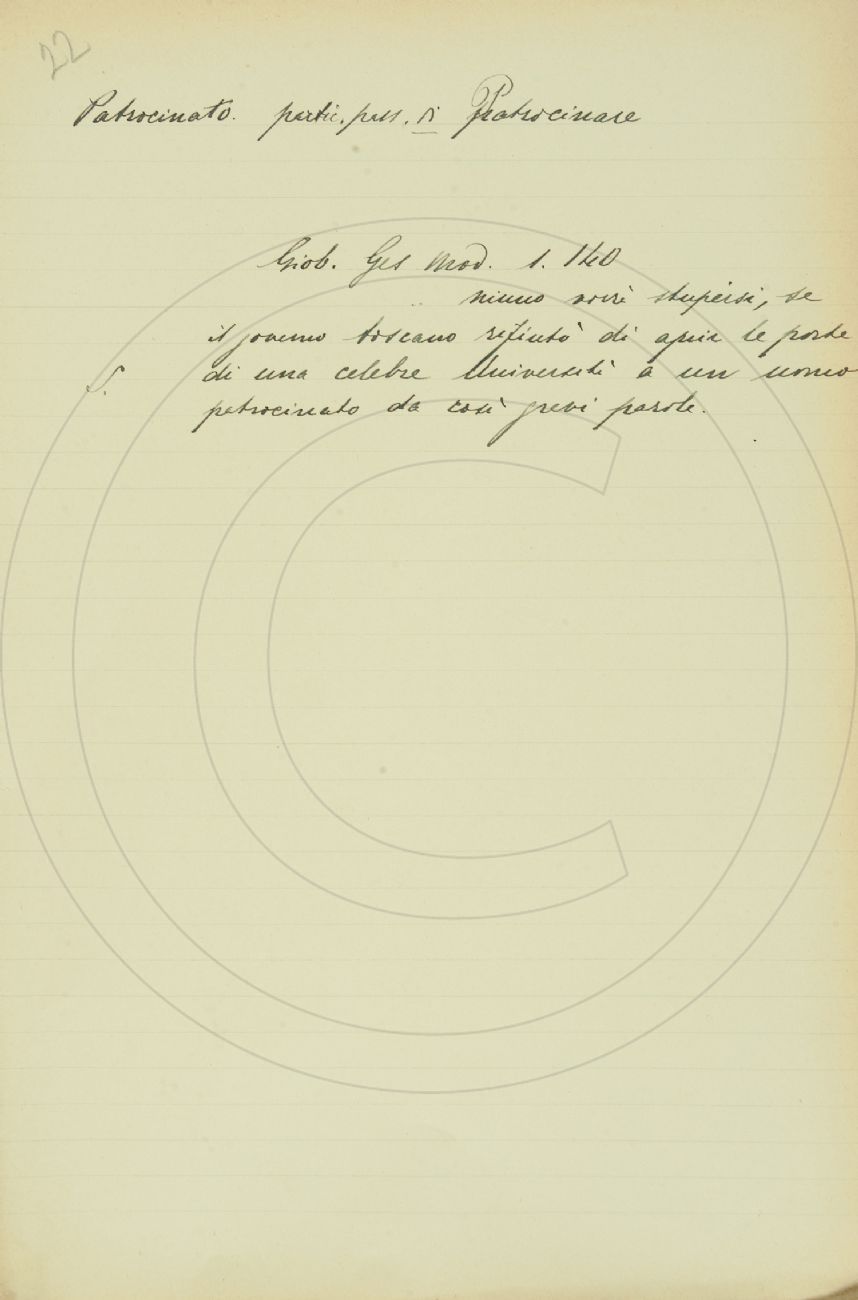 22
Patrocinato. partic. pass. di Patrocinare
Giob. Ges Mod. 1. 140
niuno vorrà stupirsi, se
il governo toscano rifiutò di aprir le porte
S. di una celebre Università a un uomo
patrocinato da così grevi parole.